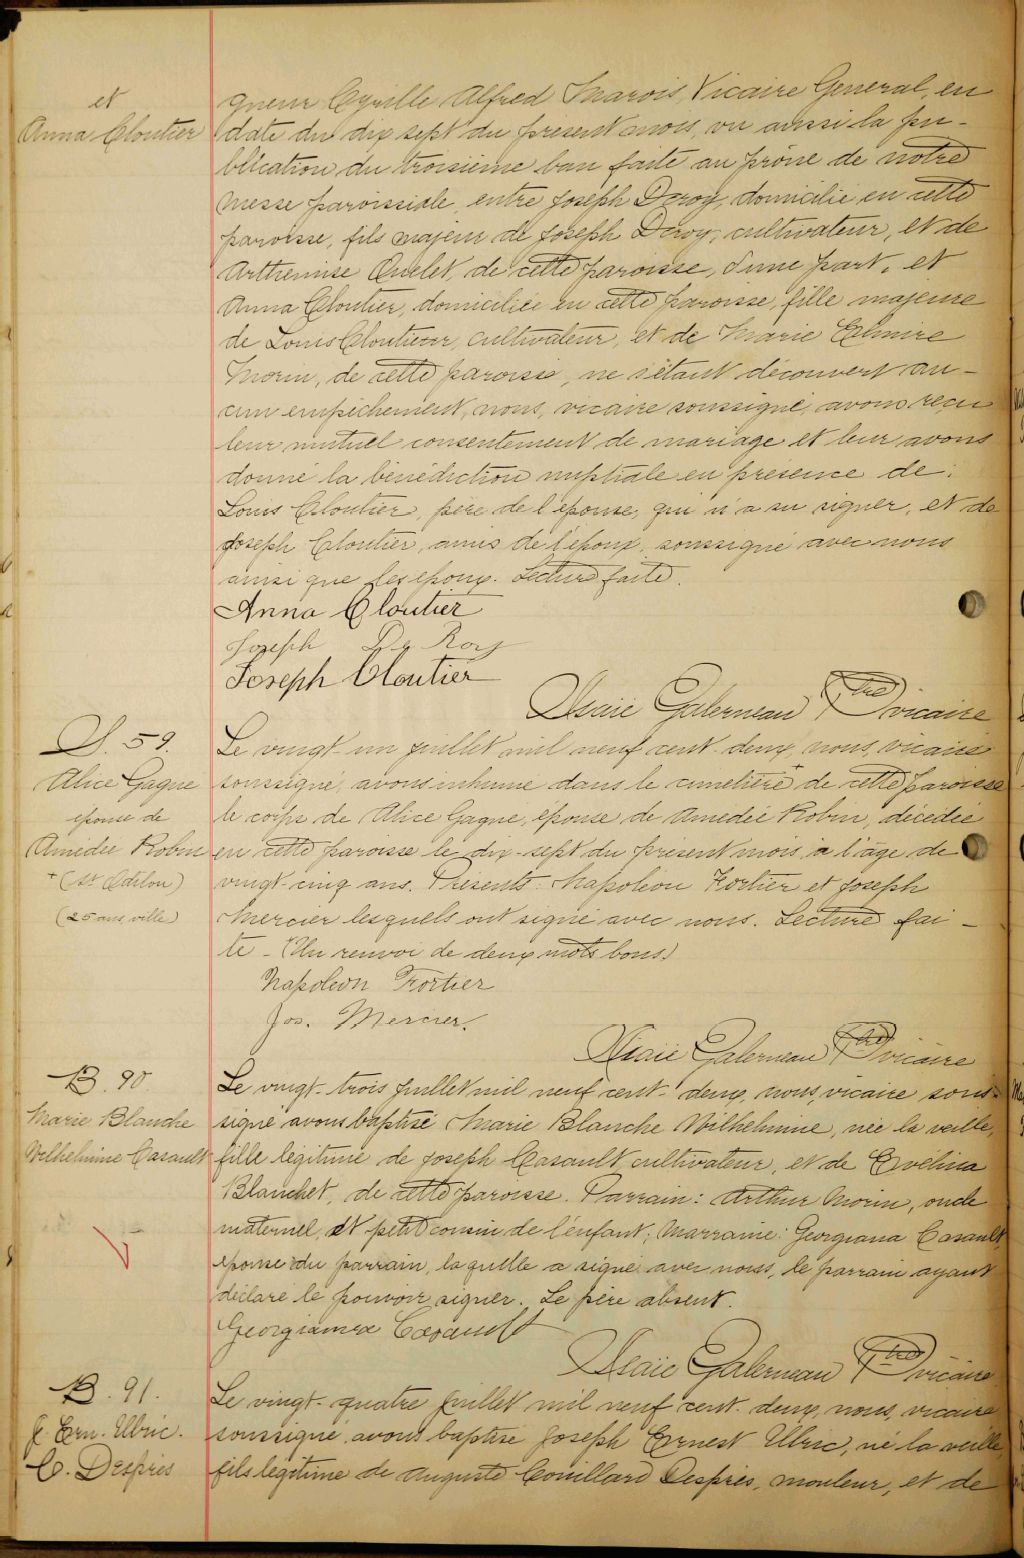 et
Anna Cloutier
gneur Cyrille Alfred Marois, Vicaire General, en
date du dix sept du présent mois, vu aussi la pu-
blication du troisième ban faite au prône de notre
messe paroissiale, entre Joseph Deroy, domicilié en cette
paroisse, fils majeur de Joseph Deroy, cultivateur, et de
Arthemise Ouelet, de cette paroisse, d'une part, et
Anna Cloutier, domiciliée en cette paroisse, fille majeure
de Louis Cloutier, cultivateur, et de Marie Elmire
Morin, de cette paroisse, ne s'étant découvert au-
cun empêchement, nous, vicaire soussigné, avons reçu
leur mutuel consentement de mariage et leur avons
donné la bénédiction nuptiale en présence de:
Louis Cloutier, père de l'épouse, qui n'a su signer, et de
Joseph Cloutier, amis de l'époux, soussigné avec nous
ainsi que les époux. Lecture faite.
Anna Cloutier
Joseph De Roy
Joseph Cloutier
Isaïe Galerneau Ptre vicaire
S. 59.
Alice Gagne
épouse de
Amedée Robin
+ (St Odilon)
(25 ans, ville)
Le vingt-un juillet mil neuf cent-deux, nous, vicaire
soussigné, avons inhumé dans le cimetière + de cette paroisse
le corps de Alice Gagne, épouse de Amedée Robin, décédée
en cette paroisse le dix-sept du présent mois, à l'âge de
vingt-cinq ans. Présents: Napoléon Fortier et Joseph
Mercier lesquels ont signé avec nous. Lecture fai-
te - (Un renvoi de deux mots bons.)
Napoleon Fortier
Jos. Mercier.
Isaïe Galerneau Ptre vicaire
B. 90
Marie Blanche
Wilhelmine Casault
Le vingt-trois juillet mil neuf cent-deux, nous, vicaire sous-
signé avons baptisé Marie Blanche Wilhelmine, née la veille,
fille légitime de Joseph Casault, cultivateur, et de Evélina
Blanchet, de cette paroisse. Parrain: Arthur Morin, oncle
maternel, et petit cousin de l'enfant; Marraine: Georgiana Casault,
épouse du parrain, laquelle a signé avec nous, le parrain ayant
déclaré le pouvoir signer. Le père absent.
Georgianna Casault
Isaïe Galerneau Ptre vicaire
B. 91.
J. Ern. Ulric.
C. Després
Le vingt-quatre juillet mil neuf cent-deux, nous, vicaire
soussigné, avons baptisé Joseph Ernest Ulric, né la veille,
fils légitime de Auguste Couillard Després, mouleur, et de